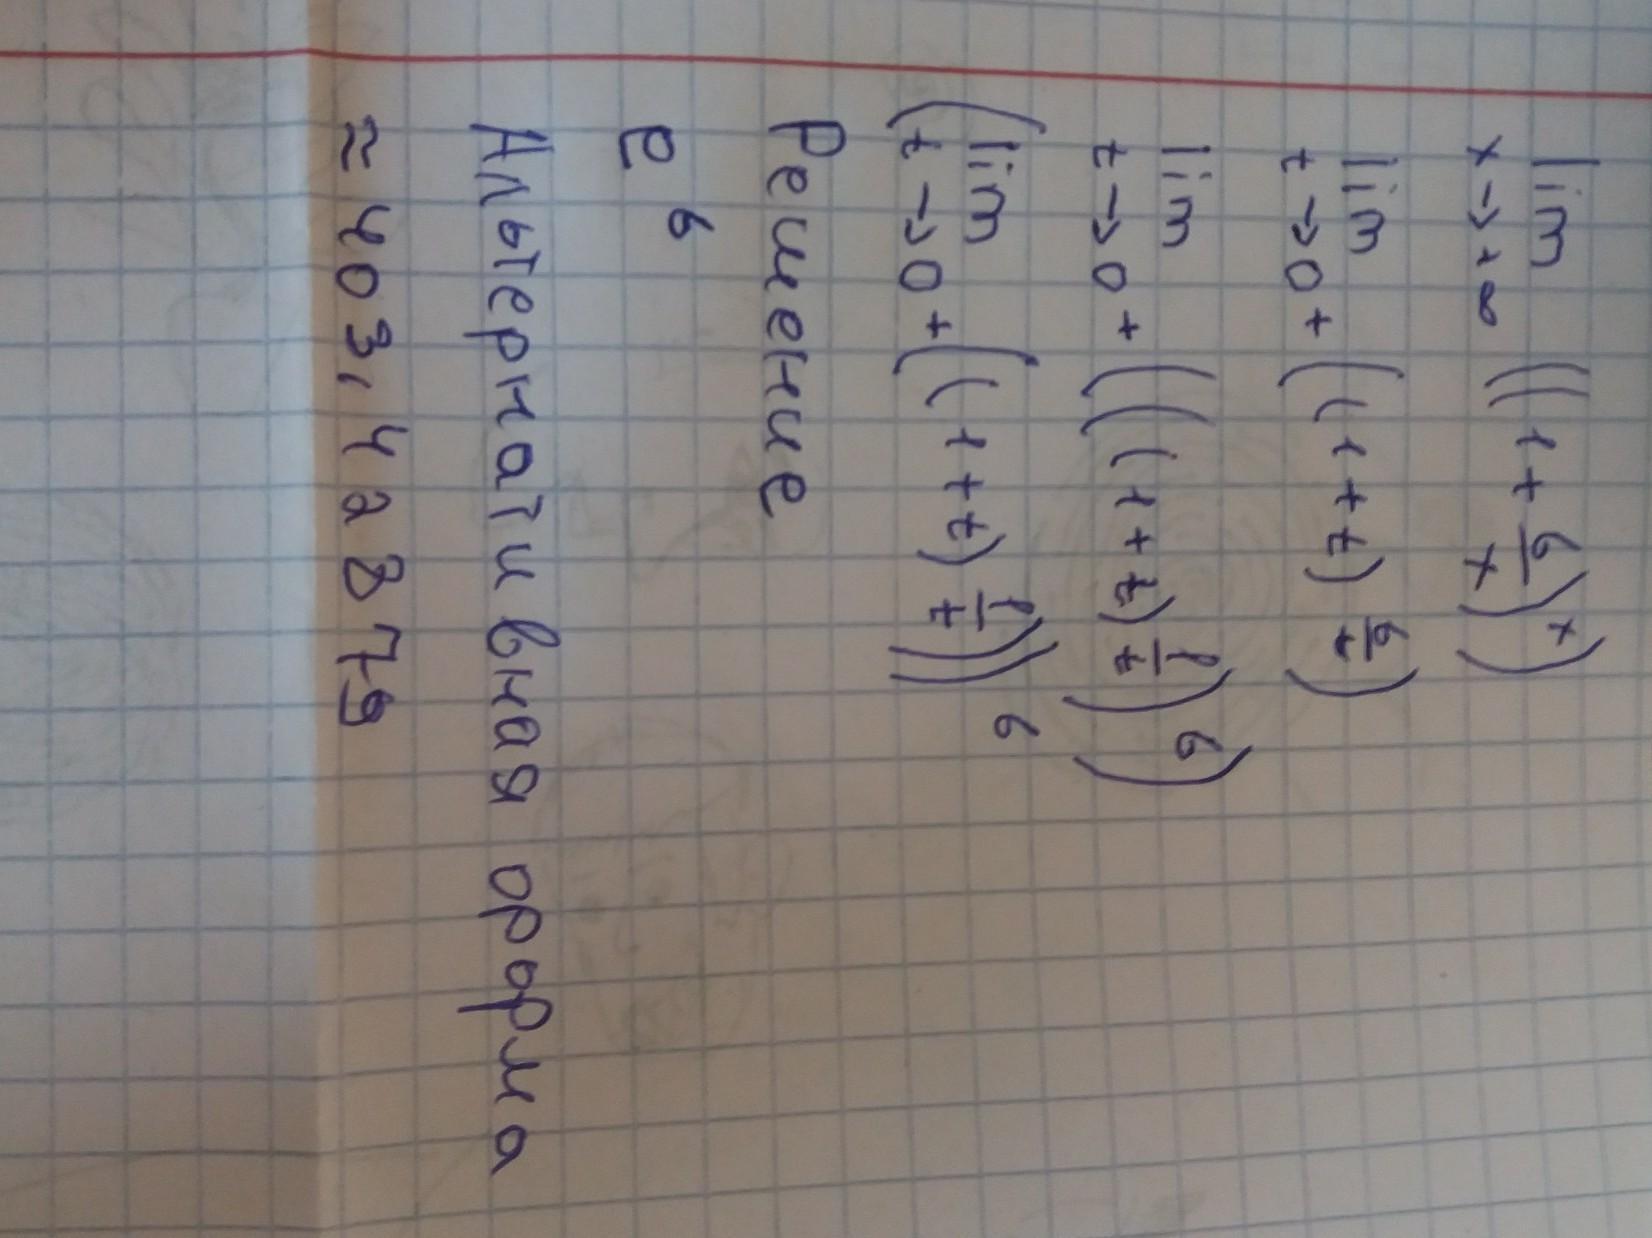 lim x→+∞ ((1 + 6/x)^x)
lim t→0+ ((1+t)^6/t)
lim t→0+ (((1+t)^1/t)^6)
(lim t→0+ ((1+t)^1/t))^6
Решение
e^6
Альтернативная форма
≈ 403,42879